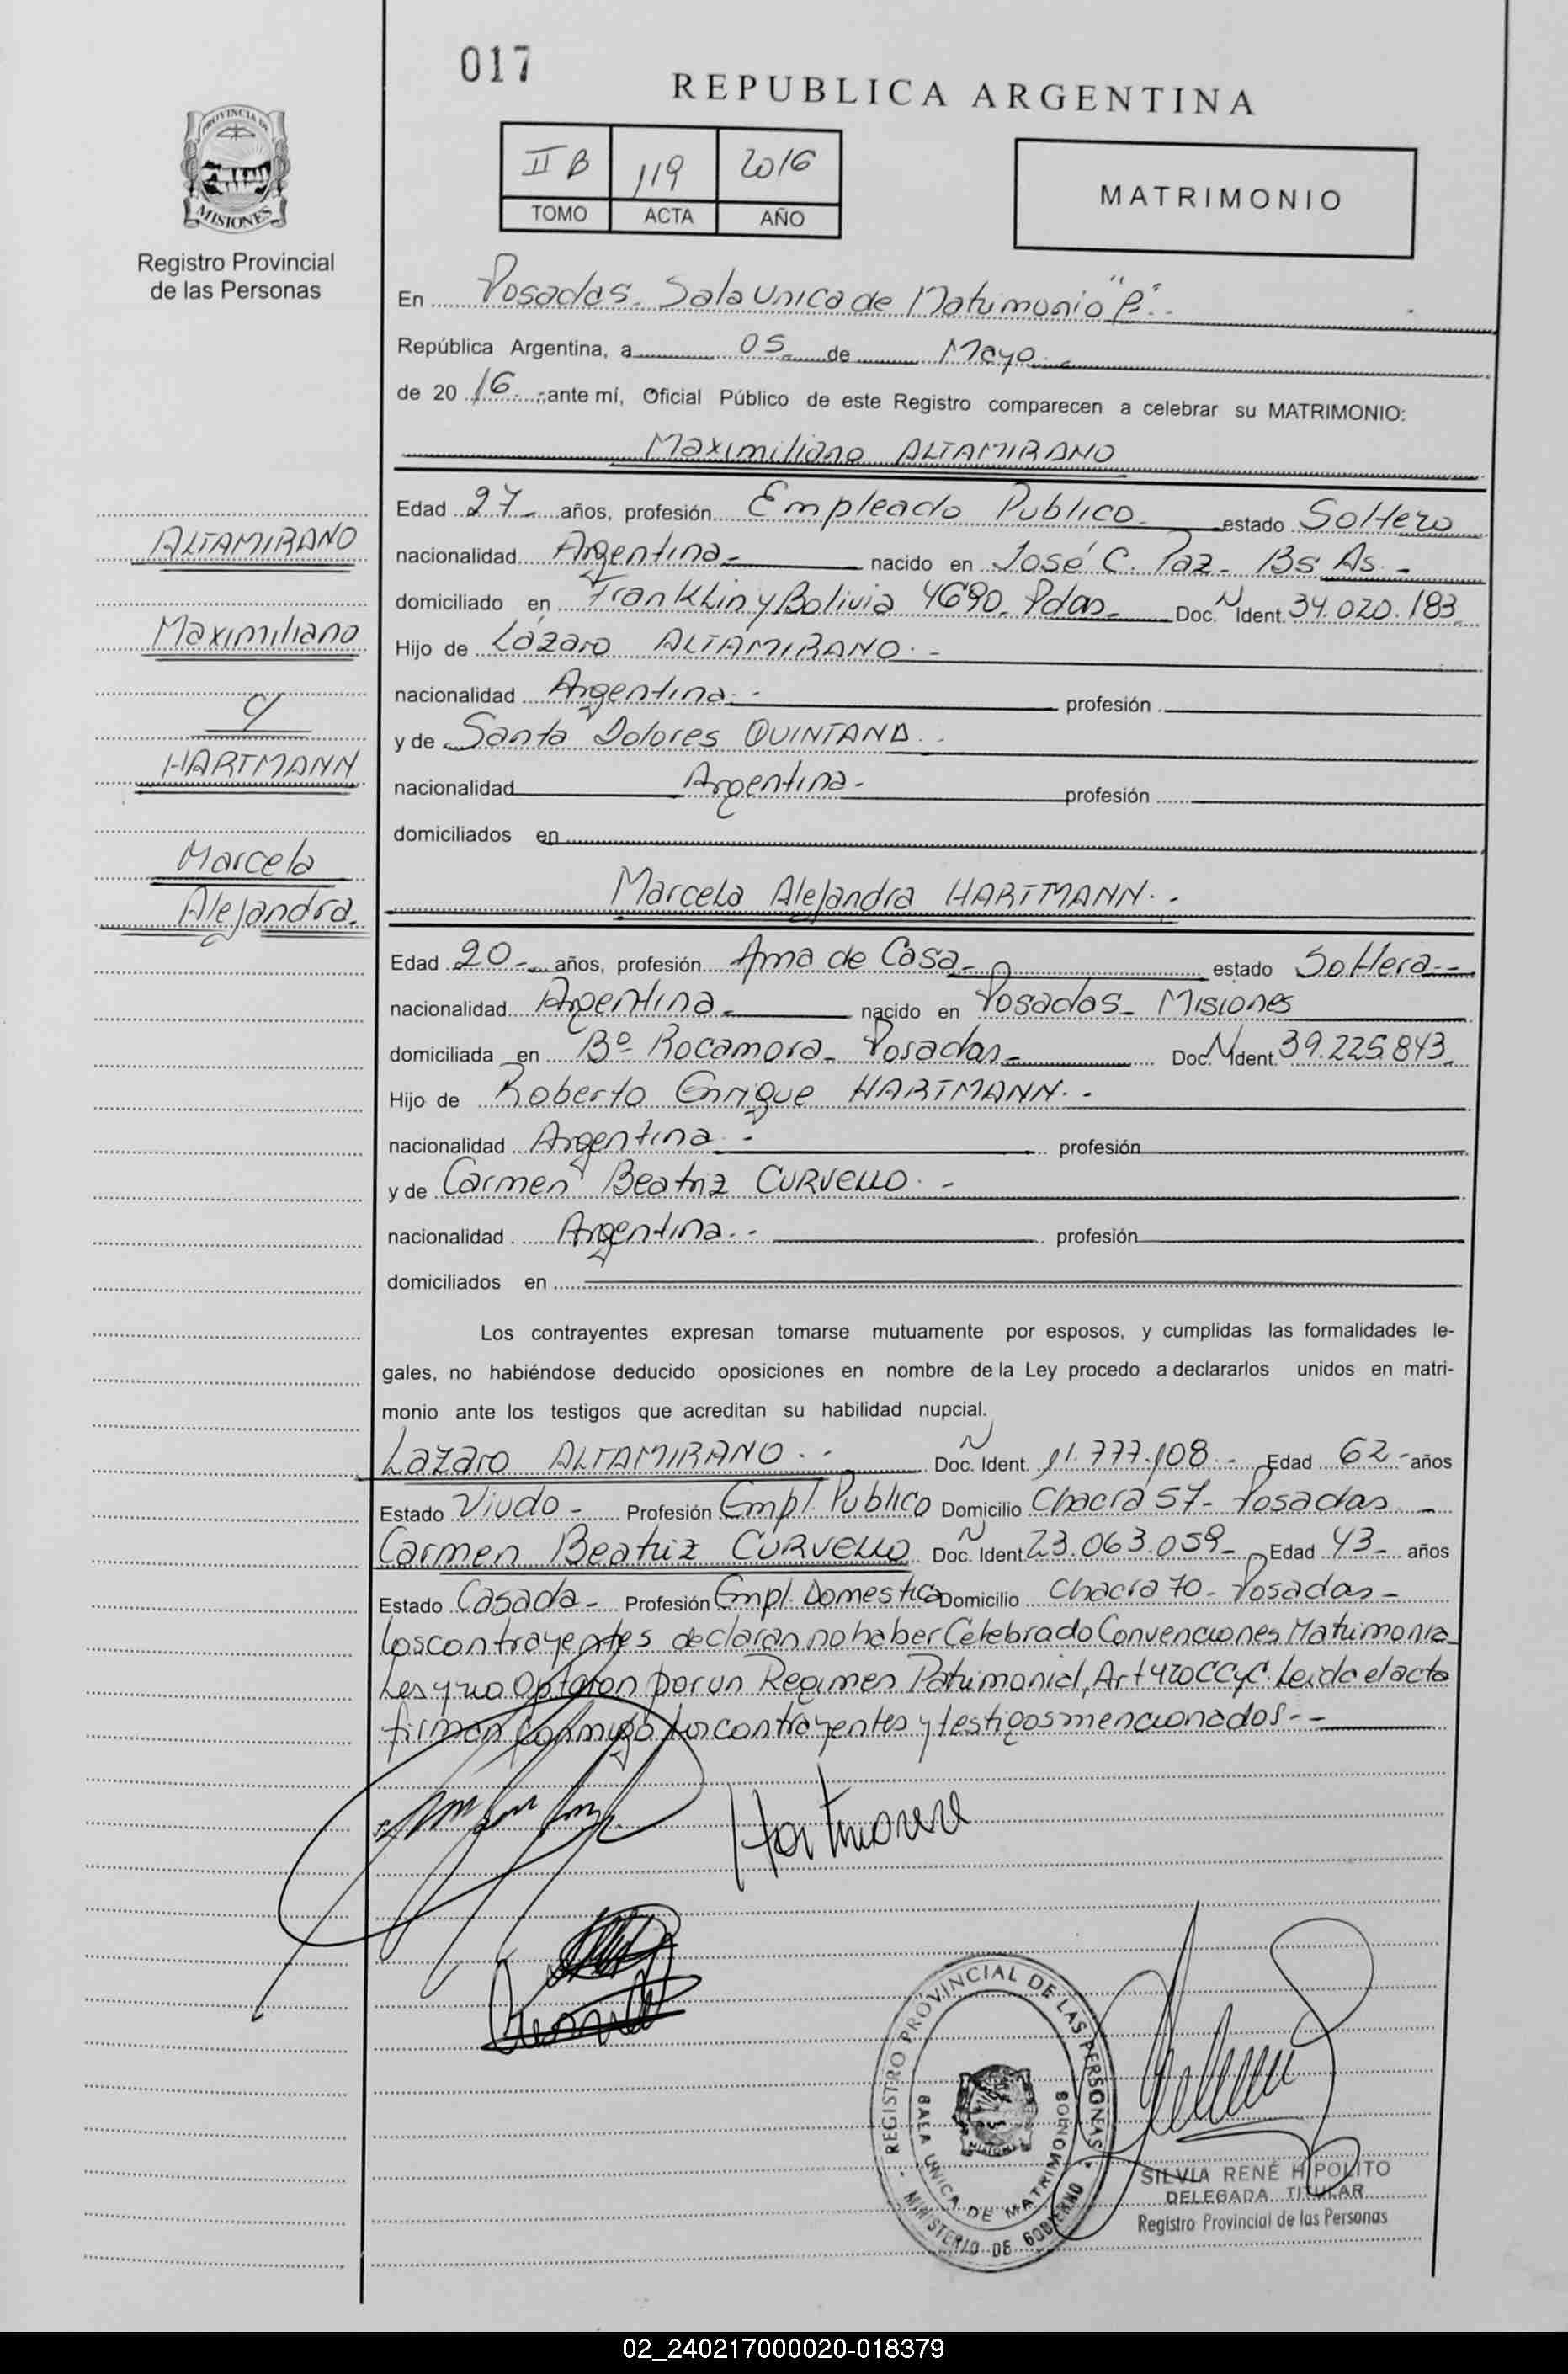 017
REPUBLICA ARGENTINA
PROVINCIA DE
MISIONES
Registro Provincial
de las Personas
II B 119 2016
TOMO ACTA AÑO
MATRIMONIO
En Posadas. Sala Unica de Matrimonio "B".-
República Argentina, a 05 de Mayo
de 2016 ,ante mí, Oficial Público de este Registro comparecen a celebrar su MATRIMONIO:
Maximiliano ALTAMIRANO
Edad 27 años, profesión Empleado Publico estado Soltero
nacionalidad Argentina nacido en José C. Paz - Bs As.-
domiciliado en Franklin y Bolivia 4690. Pdas Doc. N Ident. 34.020.183
Hijo de Lázaro ALTAMIRANO.-
nacionalidad Argentina.- profesión
y de Santa Dolores QUINTANA.-
nacionalidad Argentina.- profesión
domiciliados en
Marcela Alejandra HARTMANN.-
Edad 20 años, profesión Ama de Casa estado Soltera
nacionalidad Argentina nacido en Posadas - Misiones
domiciliada en Bº Rocamora - Posadas Doc. N Ident. 39.225.843
Hijo de Roberto Enrique HARTMANN.-
nacionalidad Argentina.- profesión
y de Carmen Beatriz CURVELLO.-
nacionalidad Argentina.- profesión
domiciliados en
ALTAMIRANO
Maximiliano
c/
HARTMANN
Marcela
Alejandra.
Los contrayentes expresan tomarse mutuamente por esposos, y cumplidas las formalidades le-
gales, no habiéndose deducido oposiciones en nombre de la Ley procedo a declararlos unidos en matri-
monio ante los testigos que acreditan su habilidad nupcial.
Lazaro ALTAMIRANO.- Doc. N Ident. 11.777.108 Edad 62 años
Estado Viudo Profesión Empl. Publico Domicilio Chacra 57 - Posadas
Carmen Beatriz CURVELLO Doc. N Ident 23.063.059 Edad 43 años
Estado Casada Profesión Empl. Domestica Domicilio Chacra 70 - Posadas
Los contrayentes declaran no haber Celebrado Convenciones Matrimonia
les y no Optaron por un Regimen Patrimonial, Art 420 CCyC. Leida el acta
firman conmigo los contrayentes y testigos mencionados.-
Hartmann
REGISTRO PROVINCIAL DE LAS PERSONAS
SALA UNICA DE MATRIMONIOS
MISIONES
MINISTERIO DE GOBIERNO
SILVIA RENÉ HIPOLITO
DELEGADA TITULAR
Registro Provincial de las Personas
02_240217000020-018379